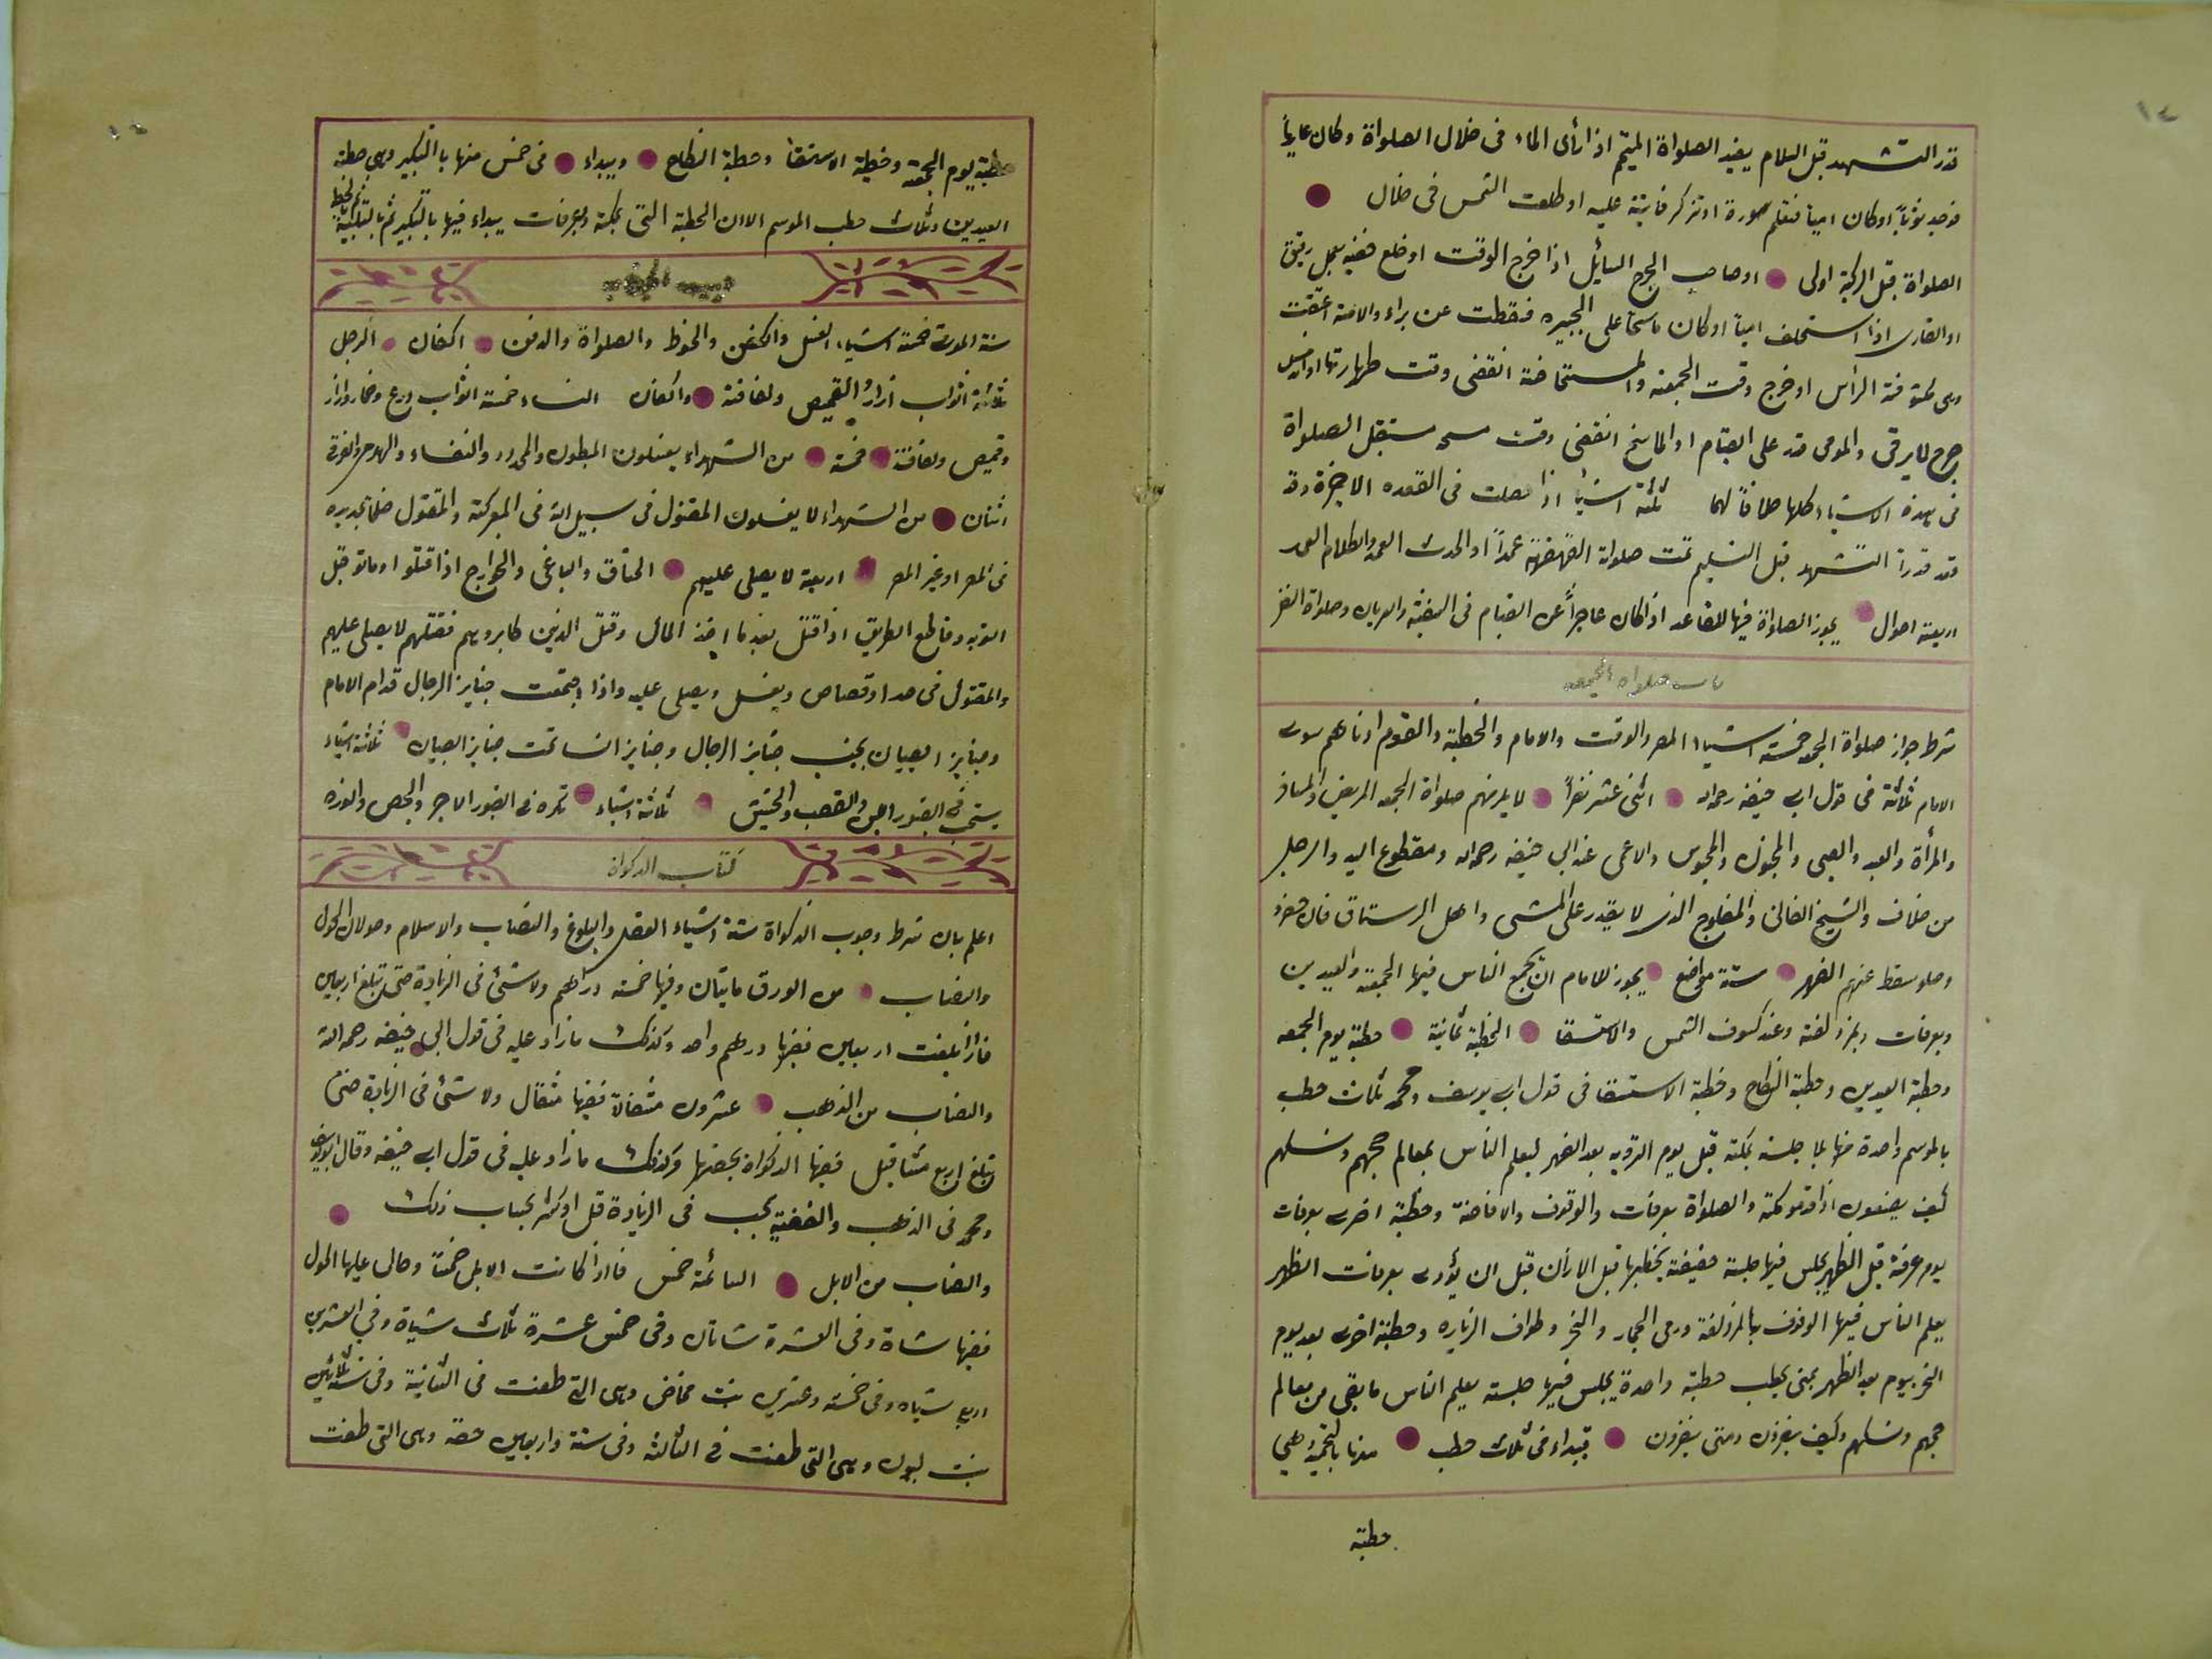 قدر التشهد قبل السلام يفيد الصلواة المتيم اذا رأى الماء فى خلال الصلواة وكان عارياً
فوجد ثوباً او كان امياً فتعلم سورة او تذكر فايتة عليه او طلعت الشمس فى خلال
الصلواة قبل الركبة اولى او صاحب الجرح السائل اذا خرج الوقت او خلع خفيه بعمل رقيق
او القارى اذا استخلف امياً او كان ماسحاً على الجبيره فسقطت عن براء والامة اعتقت
وهى مكشوفة الرأس او خرج وقت الجمعة والمستحاضة انقضى وقت طهارتها او
جرح لا يرقى والمومى قدر على القيام او الماسح انقضى وقت مسحه ستقبل الصلواة
فى هذه الاشياء كلها خلافاً لهما ثلثة اشياء اذا حصلت فى القعده الاخيرة وقد
قعد قدر التشهد قبل التسليم تمت صلواة القهقهة عمداً او الحدث العمد والكلام العمد
اربعة احوال يجوز الصلواة فيها للقاعد اذا كان عاجزاً عن القيام فى السفينة والعريان وصلواة النفل
باب صلواة الجمعه
شرط جواز صلواة الجمعه خمسة اشياء المصر والوقت والامام والخطبة والقوم ادناهم سوى
الامام ثلاثة فى قول ابى حنيفه رحمه الله اثنى عشر نفراً لا يلزمهم صلواة الجمعه المريض والمسافر
والمرأة والعبد والصبى والمجنون والمحبوس والاعمى عند ابى حنيفه رحمه الله ومقطوع اليد والرجل
من خلاف والشيخ الفانى والمفلوج الذى لا يقدر على المشى واهل الرستاق فان حضروا
وصلو سقط عنهم الظهر ستة مواضع يجوز للامام ان يجمع الناس فيها الجمعة والعيدين
وبعرفات وبمزدلفة وعند كسوف الشمس والاستسقا الخطبة ثمانية خطبة يوم الجمعه
وخطبة العيدين وخطبة النكاح وخطبة الاستسقا فى قول ابى يوسف ومحمد ثلاث خطب
بالموسم واحدة منها بلا جلسة بمكة قبل يوم التروية بعد الظهر ليعلم الناس بمعالم حجهم ونسكهم
كيف يصنعون اذا قدمو مكة والصلواة بعرفات والوقوف والافاضة وخطبة اخرى بعرفات
يوم عرفة قبل الظهر يجلس فيها جلسة خفيفة يخطبها قبل الاذان قبل ان يؤدى بعرفات الظهر
يعلم الناس فيها الوقوف بالمزدلفة ورمى الجمار والنحر وطواف الزياره وخطبة اخرى بعد يوم
النحر بيوم بعد الظهر بمنى يخطب خطبة واحدة يجلس فيها جلسة يعلم الناس ما بقى من معالم
حجهم ونسكهم وكيف ينفرون ومتى ينفرون يبتداء فى ثلاث خطب منها بالتحميد وهى
خطبة
خطبة يوم الجمعة وخطبة الاستسقا وخطبة النكاح ويبداء فى خمس منها بالتكبير وهى خطبة
العيدين وثلاث خطب الموسم الا ان الخطبة التى بمكة وبعرفات يبداء فيها بالتكبير ثم بالتلبية ثم بالخطبة
سنة الموت خمسة اشياء الغسل والكفن والحنوط والصلواة والدفن اكفان الرجل
ثلاثة اثواب ازار القميص ولفافة واكفان النساء خمسة اثواب درع وخمار وازار
وقميص ولفافة خمسة من الشهداء يغسلون المبطون والمجدور والنفساء والهدمى والغرق
اثنان من الشهداء لا يغسلون المقتول فى سبيل الله فى المعركة والمقتول ظلماً بحديده
فى المصر او غير المصر اربعة لا يصلى عليهم الخناق والباغى والخوارج اذا قتلو او ماتو قبل
التوبه وقاطع الطريق اذا قتل بعد ما اخذ المال وقتل الذين كابروهم فقتلهم لا يصلى عليهم
والمقتول فى حد او قصاص ويغسل ويصلى عليه واذا اجتمعت جنايز الرجال قدام الامام
وجنايز الصبيان بجنب جنايز الرجال وجنايز النساء تحت جنايز الصبيان ثلاثة اشياء
يستحب فى القبور اللبن والقصب والحشيش ثلاثة اشياء تكره فى القبور الاجر والجص والنوره
كتاب الزكواة
اعلم بان شرط وجوب الزكواة ستة اشياء العقل والبلوغ والنصاب والاسلام وحولان الحول
والنصاب من الورق مايتان وفيها خمسة دراهم ولا شئ فى الزيادة حتى تبلغ اربعين
فاذا بلغت اربعين ففيها درهم واحد وكذلك ما زاد عليه فى قول ابى حنيفه رحمه الله
والنصاب من الذهب عشرون مثقالا ففيها مثقال ولا شئ فى الزيادة حتى
تبلغ اربع مثاقيل ففيها الزكواة بحصتها وكذلك ما زاد عليه فى قول ابى حنيفه وقال ابو يوسف
ومحمد فى الذهب والفضة يجب فى الزيادة قل او كثر بحساب ذلك
والنصاب من الابل السائمة خمس فاذا كانت الابل خمساً وحال عليها الحول
ففيها شاة وفى العشرة شاتان وفى خمس عشرة ثلاث شياة وفى العشرين
اربع شياه وفى خمسة وعشرين بنت مخاض وهى التى طعنت فى الثانية وفى ستة وثلاثين
بنت لبون وهى التى طعنت فى الثالثة وفى ستة واربعين حقة وهى التى طعنت